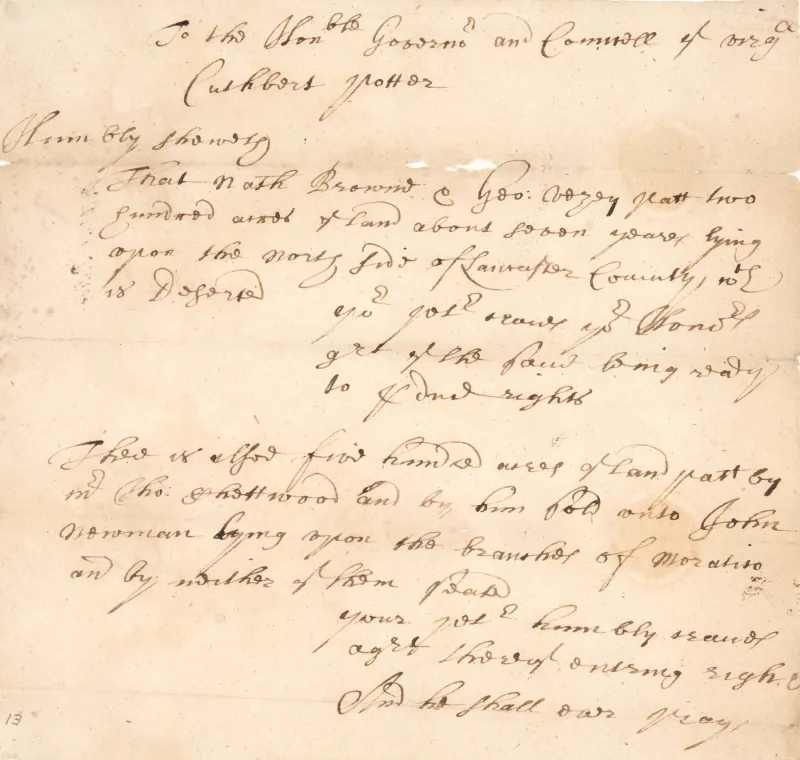 To the Honble Governor and Councell of Virga
Cuthbert Potter
Humbly sheweth
That Nath Browne & Geo: Vezey patt two
hundred acres of land about seven yeares lying
upon the North side of Lancaster County, wch
is Deserted
yor petr craves yor Honors
grt of the same being ready
to pduce rights
There is alsoe five hundred acres of land patt by
mr Tho: Chettwood and by him sold unto John
Newman lying upon the branches of Moratico
and by neither of them seated
your petr humbly craves
a grt thereof entring rights
And he shall ever pray
13